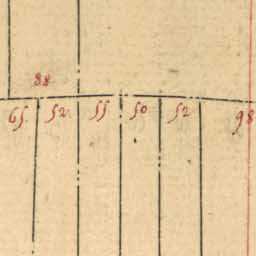 88
65 52 55 50 52 98